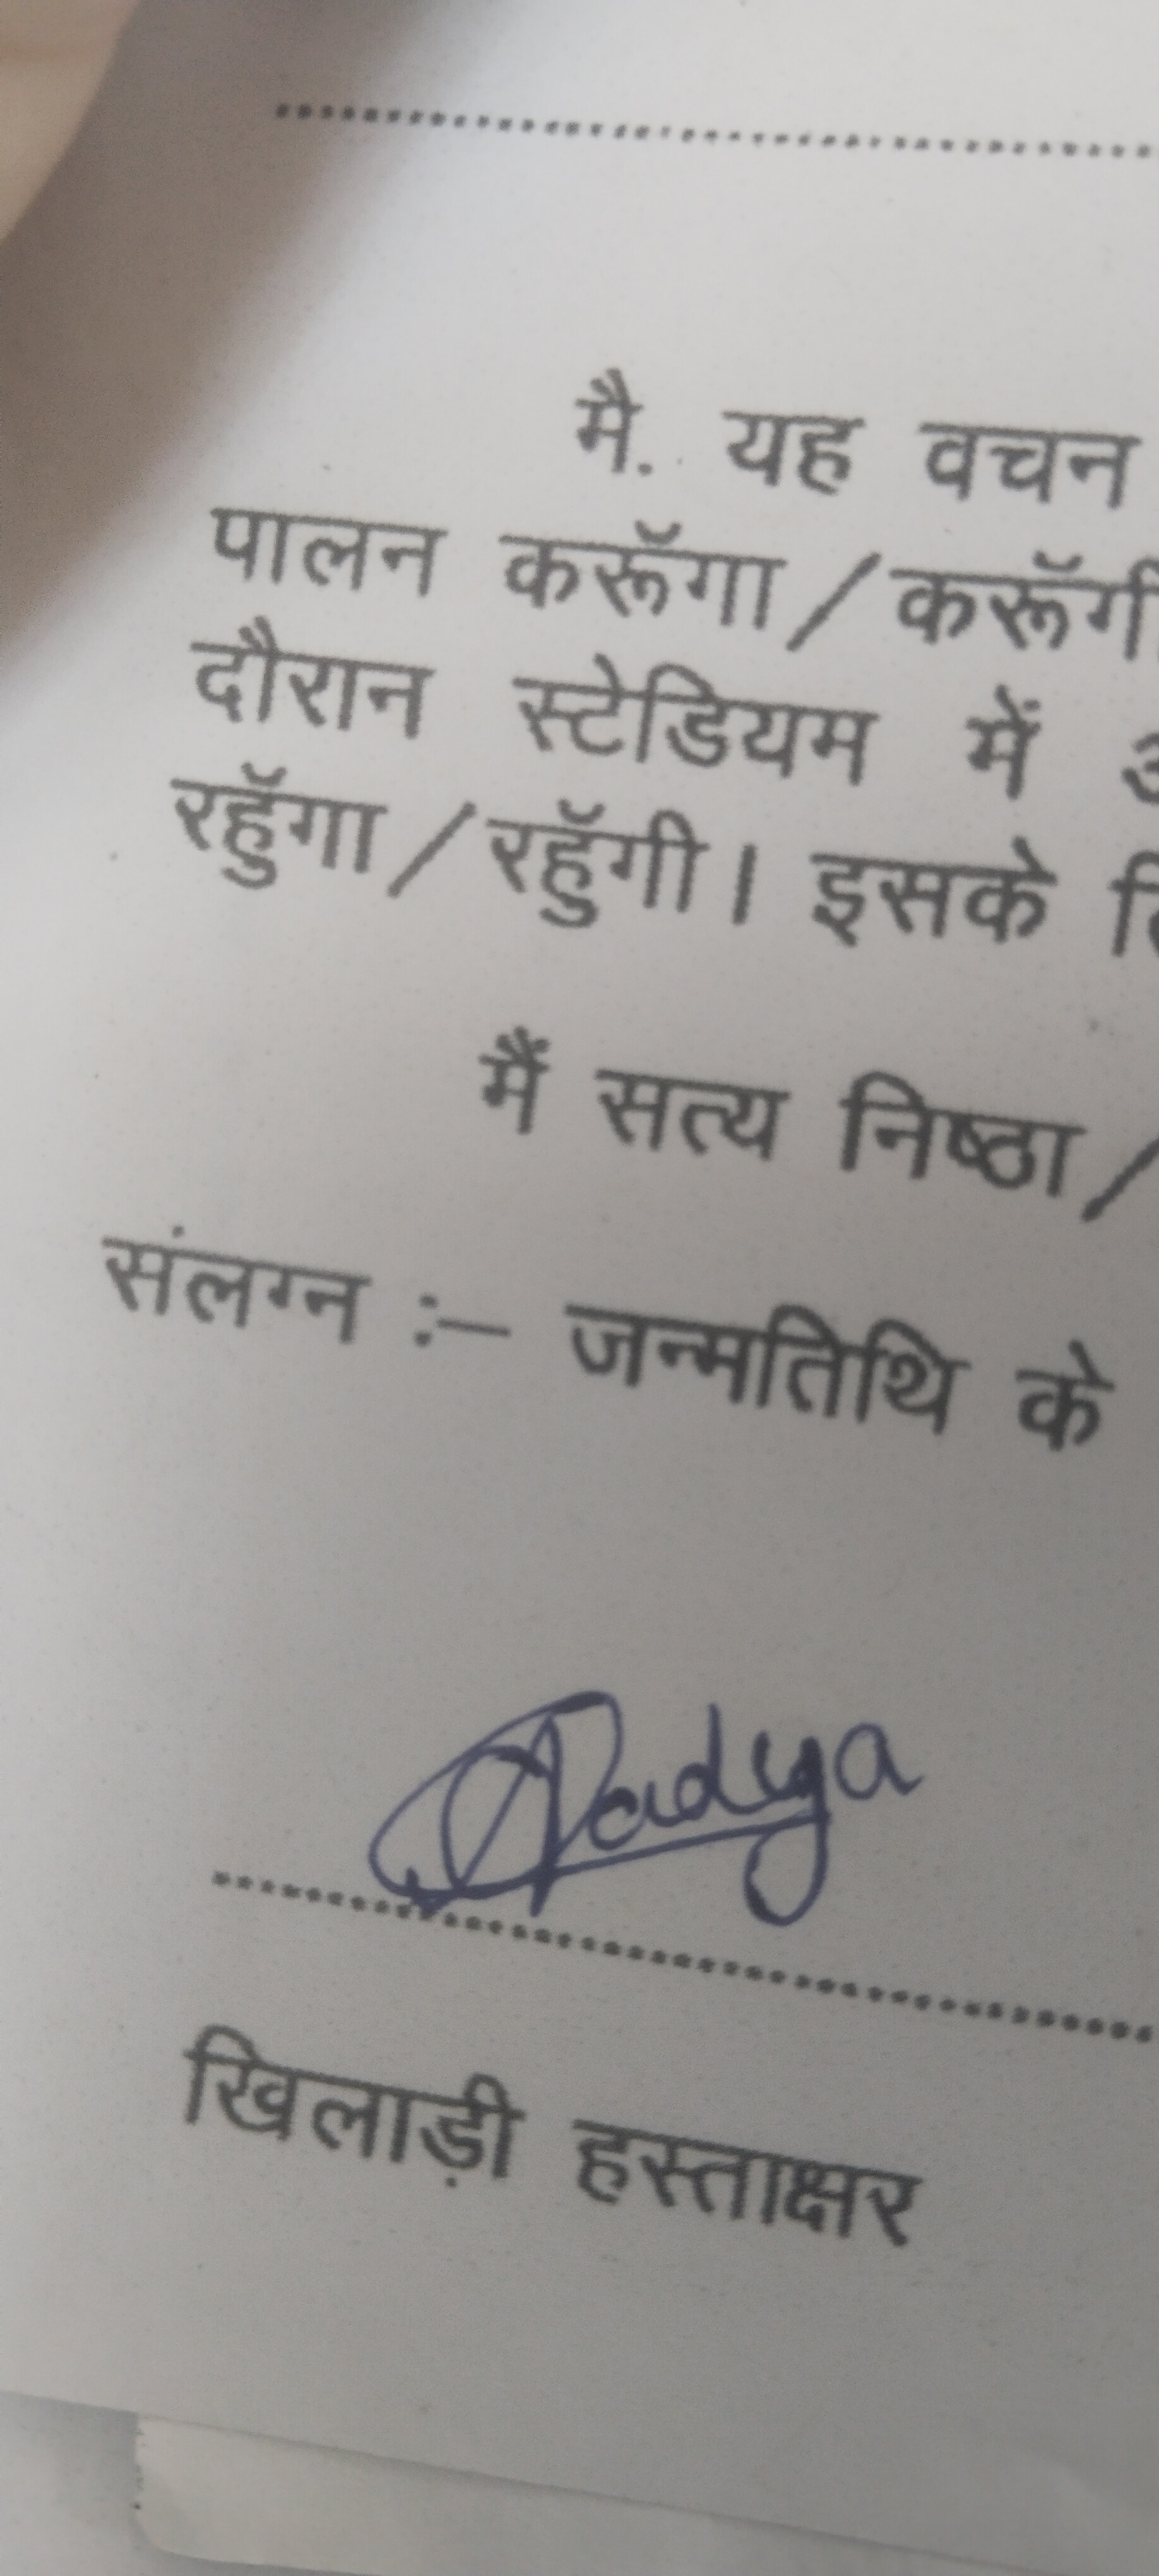 मै. यह वचन
पालन करूॅगा/करूॅगी
दौरान स्टेडियम में
रहुॅगा/रहुॅगी। इसके
मैं सत्य निष्ठा/
संलग्न :– जन्मतिथि के
खिलाड़ी हस्ताक्षर